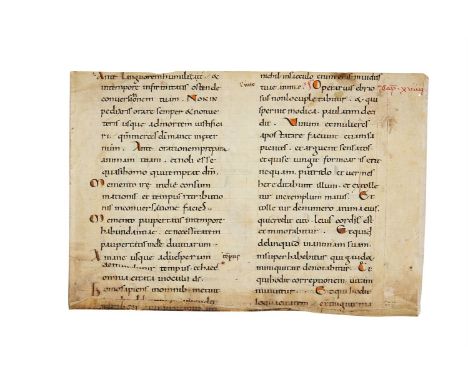 Ante languorem humilia te &
intempore infirmitatis ostende
conversationem tuam. Non in
pediaris orare semper & nonve
teris usque admortem iustifica
ri. qm merces di manet in aeter
num. Ante orationem prepara
animam tuam. et noli esse
quasi homo qui temptat dm.
Memento irę indie consum
mationis et tempus retributio
nis inconversatione faciei.
Memento paupertatis intempore
habundantiae. et necessitatem
paupertatis indie divitiarum.
A mane usque advesperum
tempus. et haec
omnia citata inoculis dei.
Homo sapiens inomnib; metuit
erunt et si mundis
tuae Operarius ebrio
sus non locupletabitur. & qui
spernit modica paulatim deci
dit. Vinum et mulieres
apostatare faciunt etiam sa
pientes. et arguent sensatos
et qui se iungit fornicariis erit
nequam. putredo et vermes
hereditabunt illum. et extolle
tur in exemplum maius. Et
tolletur de numero anima eius.
qui credit cito levis cordis est
et minorabitur. Et qui
delinquit in animam suam
insuper habebitur. qui gaudet
iniquitate denotabitur. Et
qui hodit correptionem vitam
minuitur. Et qui hodit
loquacitatem extinguit ma